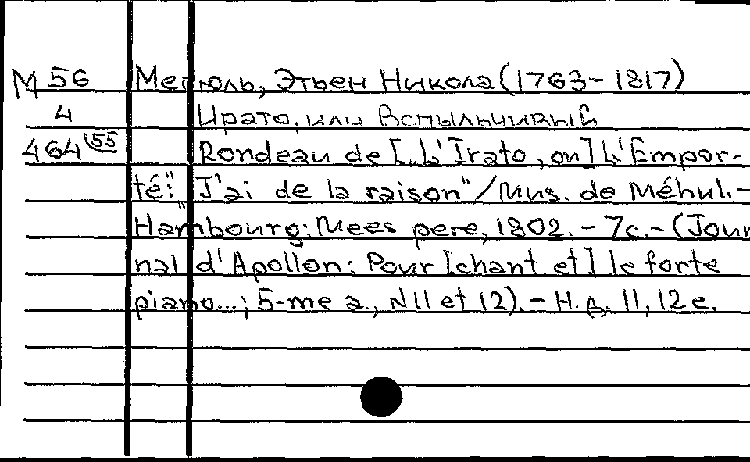 М 56 Мегюль, Этьен Никола (1763-1817)
4 Ирато, или Вспыльчивый
464(55 Rondeau de [„L'Irato, ou] L'Empor-
té": "J'ai de la raison"/Mus. de Méhul.-
Hambourg: Mees pere, 1802. - 7c. - (Jour
nal d'Apollon: Pour [chant et] le forte
piano...; 5-me a., N11 et 12). - Н.д. 11, 12 e.